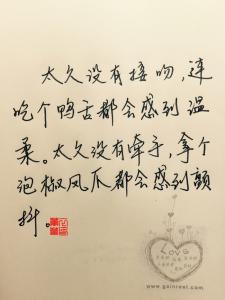 太久没有接吻，连
吃个鸭舌都会感到温
柔。太久没有牵手，拿个
泡椒凤爪都会感到颤
抖。
LOVE
www.gainreel.com